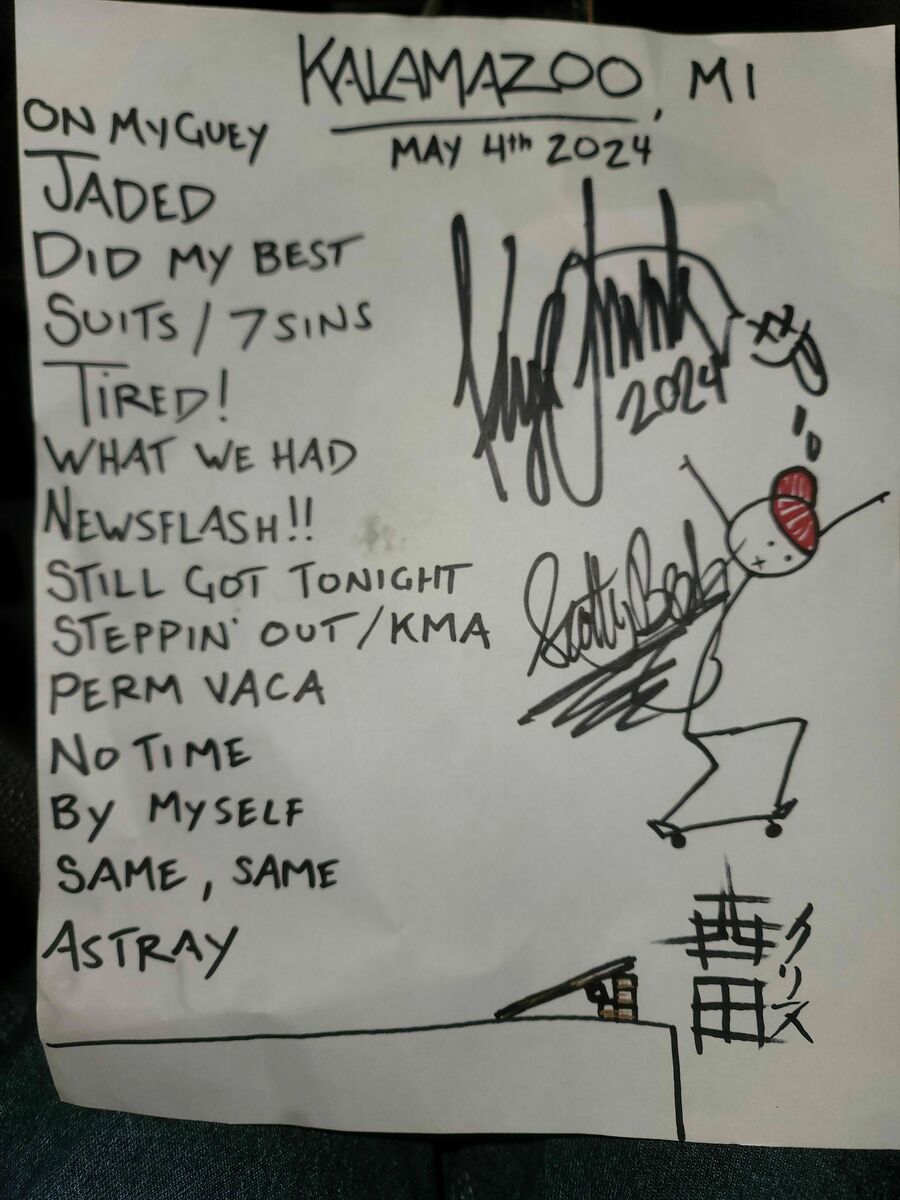 KALAMAZOO, MI
MAY 4th 2024
ON MY GUEY
JADED
DID MY BEST
SUITS / 7 SINS
TIRED!
WHAT WE HAD
NEWSFLASH!!
STILL GOT TONIGHT
STEPPIN' OUT / KMA
PERM VACA
NO TIME
BY MYSELF
SAME, SAME
ASTRAY
2024
Scotty
クリス